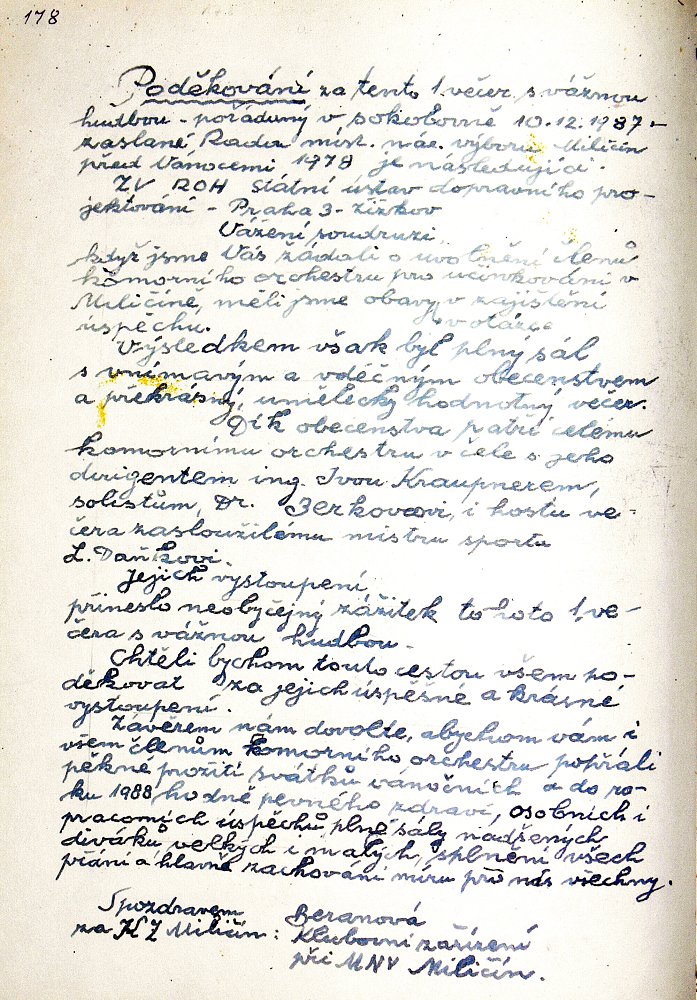 178
Poděkování za tento 1. večer s vážnou
hudbou - pořádaný v sokolovně 10.12.1987 -
zaslané Radou míst. nár. výboru Miličín
před Vánocemi 1978 je následující:
ZV ROH Státní ústav dopravního pro-
jektování - Praha 3 - Žižkov
Vážení soudruzi,
když jsme Vás žádali o uvolnění členů
komorního orchestru pro účinkování v
Miličíně, měli jsme obavy v zajištění
úspěchu. v otázce
Výsledkem však byl plný sál
s vnímavým a vděčným obecenstvem
a překrásný, umělecky hodnotný večer.
Dík obecenstva patří celému
komornímu orchestru v čele s jeho
dirigentem ing. Ivou Kraupnerem,
solistům, Dr. i hostu ve-
čera zasloužilému mistru sportu
L. Daňkovi.
Jejich vystoupení
přineslo neobyčejný zážitek tohoto 1. ve-
čera s vážnou hudbou.
Chtěli bychom touto cestou všem po-
děkovat za jejich úspěšné a krásné
vystoupení.
Závěrem nám dovolte, abychom vám i
všem členům komorního orchestru popřáli
pěkné prožití svátků vánočních a do ro-
ku 1988 hodně pevného zdraví, osobních i
pracovních úspěchů, plné sály nadšených
diváků velkých i malých, splnění všech
přání a hlavně zachování míru pro nás všechny.
S pozdravem Beranová
za KZ Miličín: Klubovní zařízení
při MNV Miličín.